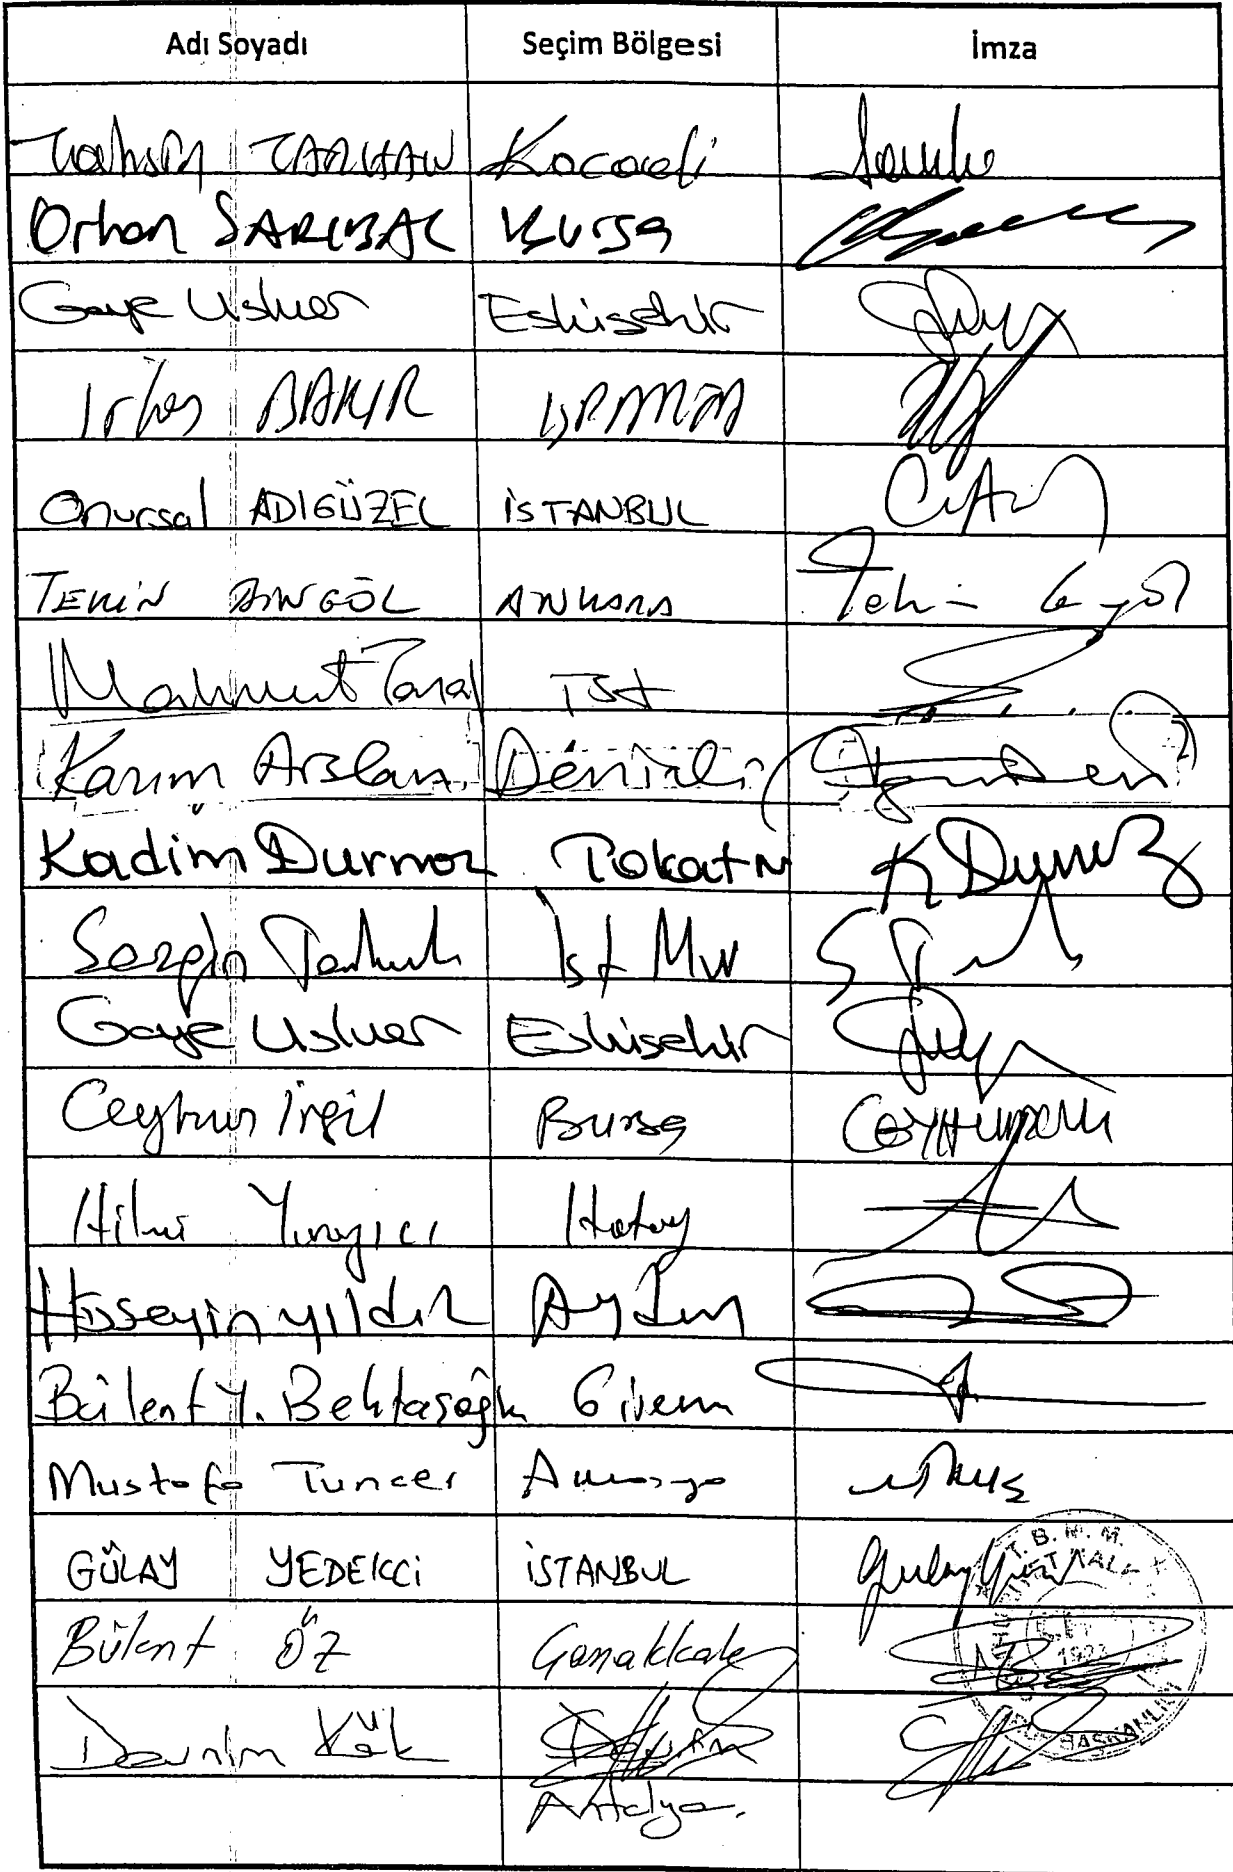 Adı Soyadı Seçim Bölgesi İmza
Tahsin TARHAN Kocaeli
Orhan SARIBAL Bursa
Gaye Usluer Eskişehir
İrfan BAKIR ISPARTA
Onursal ADIGÜZEL İSTANBUL
TEKİN BİNGÖL ANKARA Tekin Bingöl
Mahmut Tanal İst
Kazım Arslan Denizli
Kadim Durmaz Tokat M K Durmaz
Sezgin Tanrıkulu İst Mv
Gaye Usluer Eskişehir
Ceyhun İrgil Bursa CEYHUN
Hilmi Yarayıcı Hatay
Hüseyin yıldız Aydın
Bülent Y. Bektaşoğlu Giresun
Mustafa Tuncer Amasya
GÜLAY YEDEKCİ İSTANBUL Gulay
T.B.M.M.
Bülent ÖZ Çanakkale
1923
Devrim Kök
BAŞKANLIĞI
Antalya.